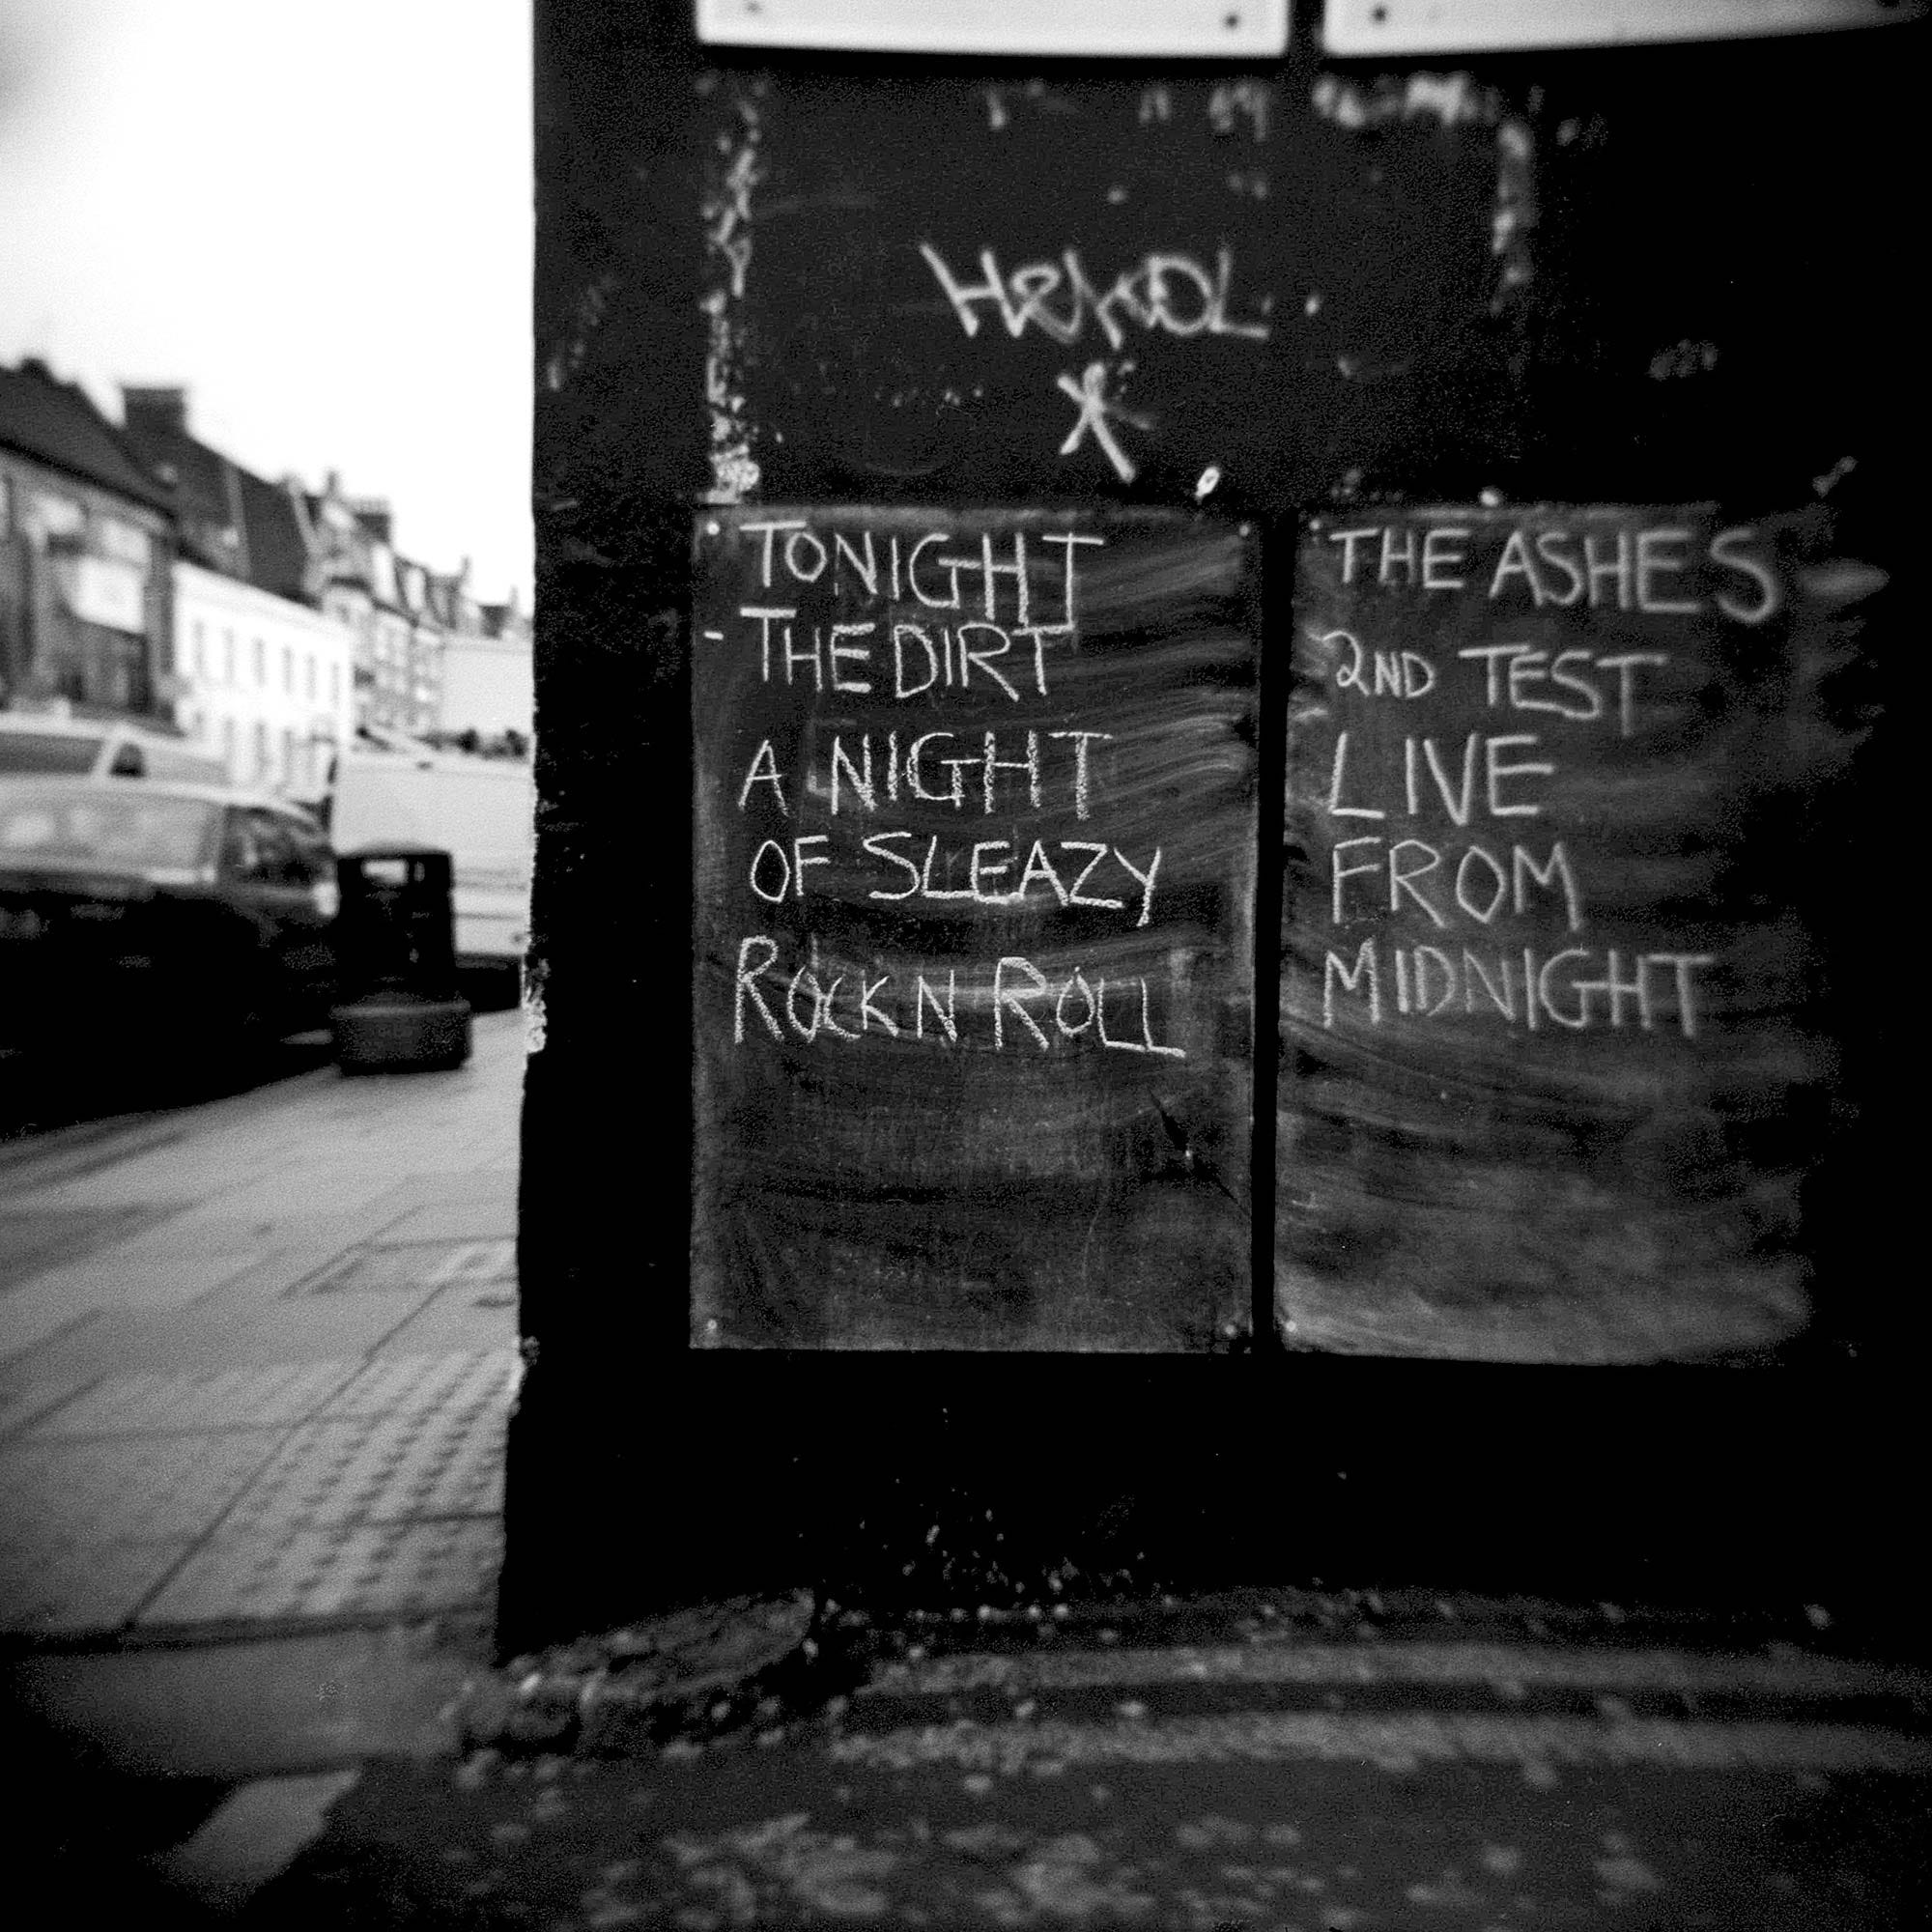 TONIGHT
- THE DIRT
A NIGHT
OF SLEAZY
ROCK N ROLL
THE ASHES
2ND TEST
LIVE
FROM
MIDNIGHT